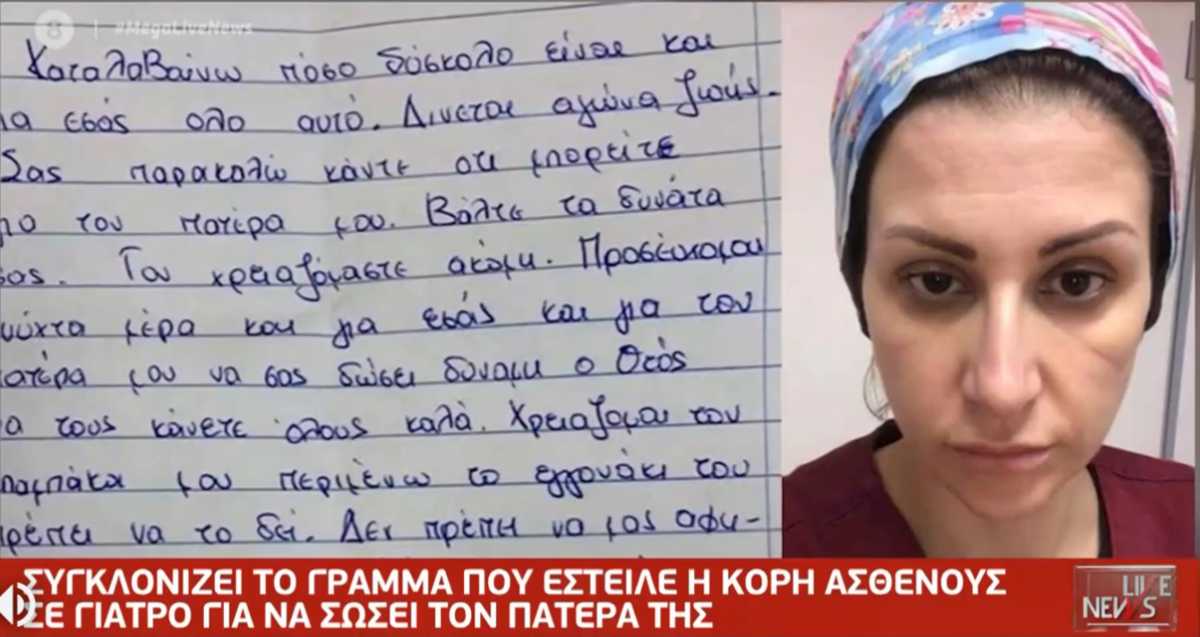 8 | #MegaLiveNews
Καταλαβαίνω πόσο δύσκολο είναι και
ια εσάς ολο αυτό. Δινεται αγώνα ζωής.
Σας παρακαλώ κάντε οτι μπορείτε
ια τον πατέρα μου. Βάλτε τα δυνάτα
σας. Τον χρειαζόμαστε ακόμη. Προσέυχομαι
νύχτα μέρα και για εσάς και για τον
ατέρα μου να σας δώσει δύναμη ο Θεός
α τους κάνετε όλους καλά. Χρειαζομαι τον
παμπάκα μου περιμένω το εγγονάκι του
ρέπει να το δεί. Δεν πρέπει να μας αφη-
ΣΥΓΚΛΟΝΙΖΕΙ ΤΟ ΓΡΑΜΜΑ ΠΟΥ ΕΣΤΕΙΛΕ Η ΚΟΡΗ ΑΣΘΕΝΟΥΣ
ΣΕ ΓΙΑΤΡΟ ΓΙΑ ΝΑ ΣΩΣΕΙ ΤΟΝ ΠΑΤΕΡΑ ΤΗΣ
LIVE
NEWS